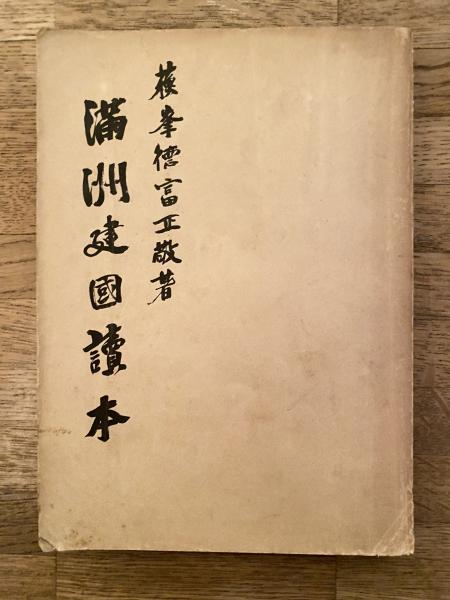 蘓峯德富正敬著
滿洲建國讀本